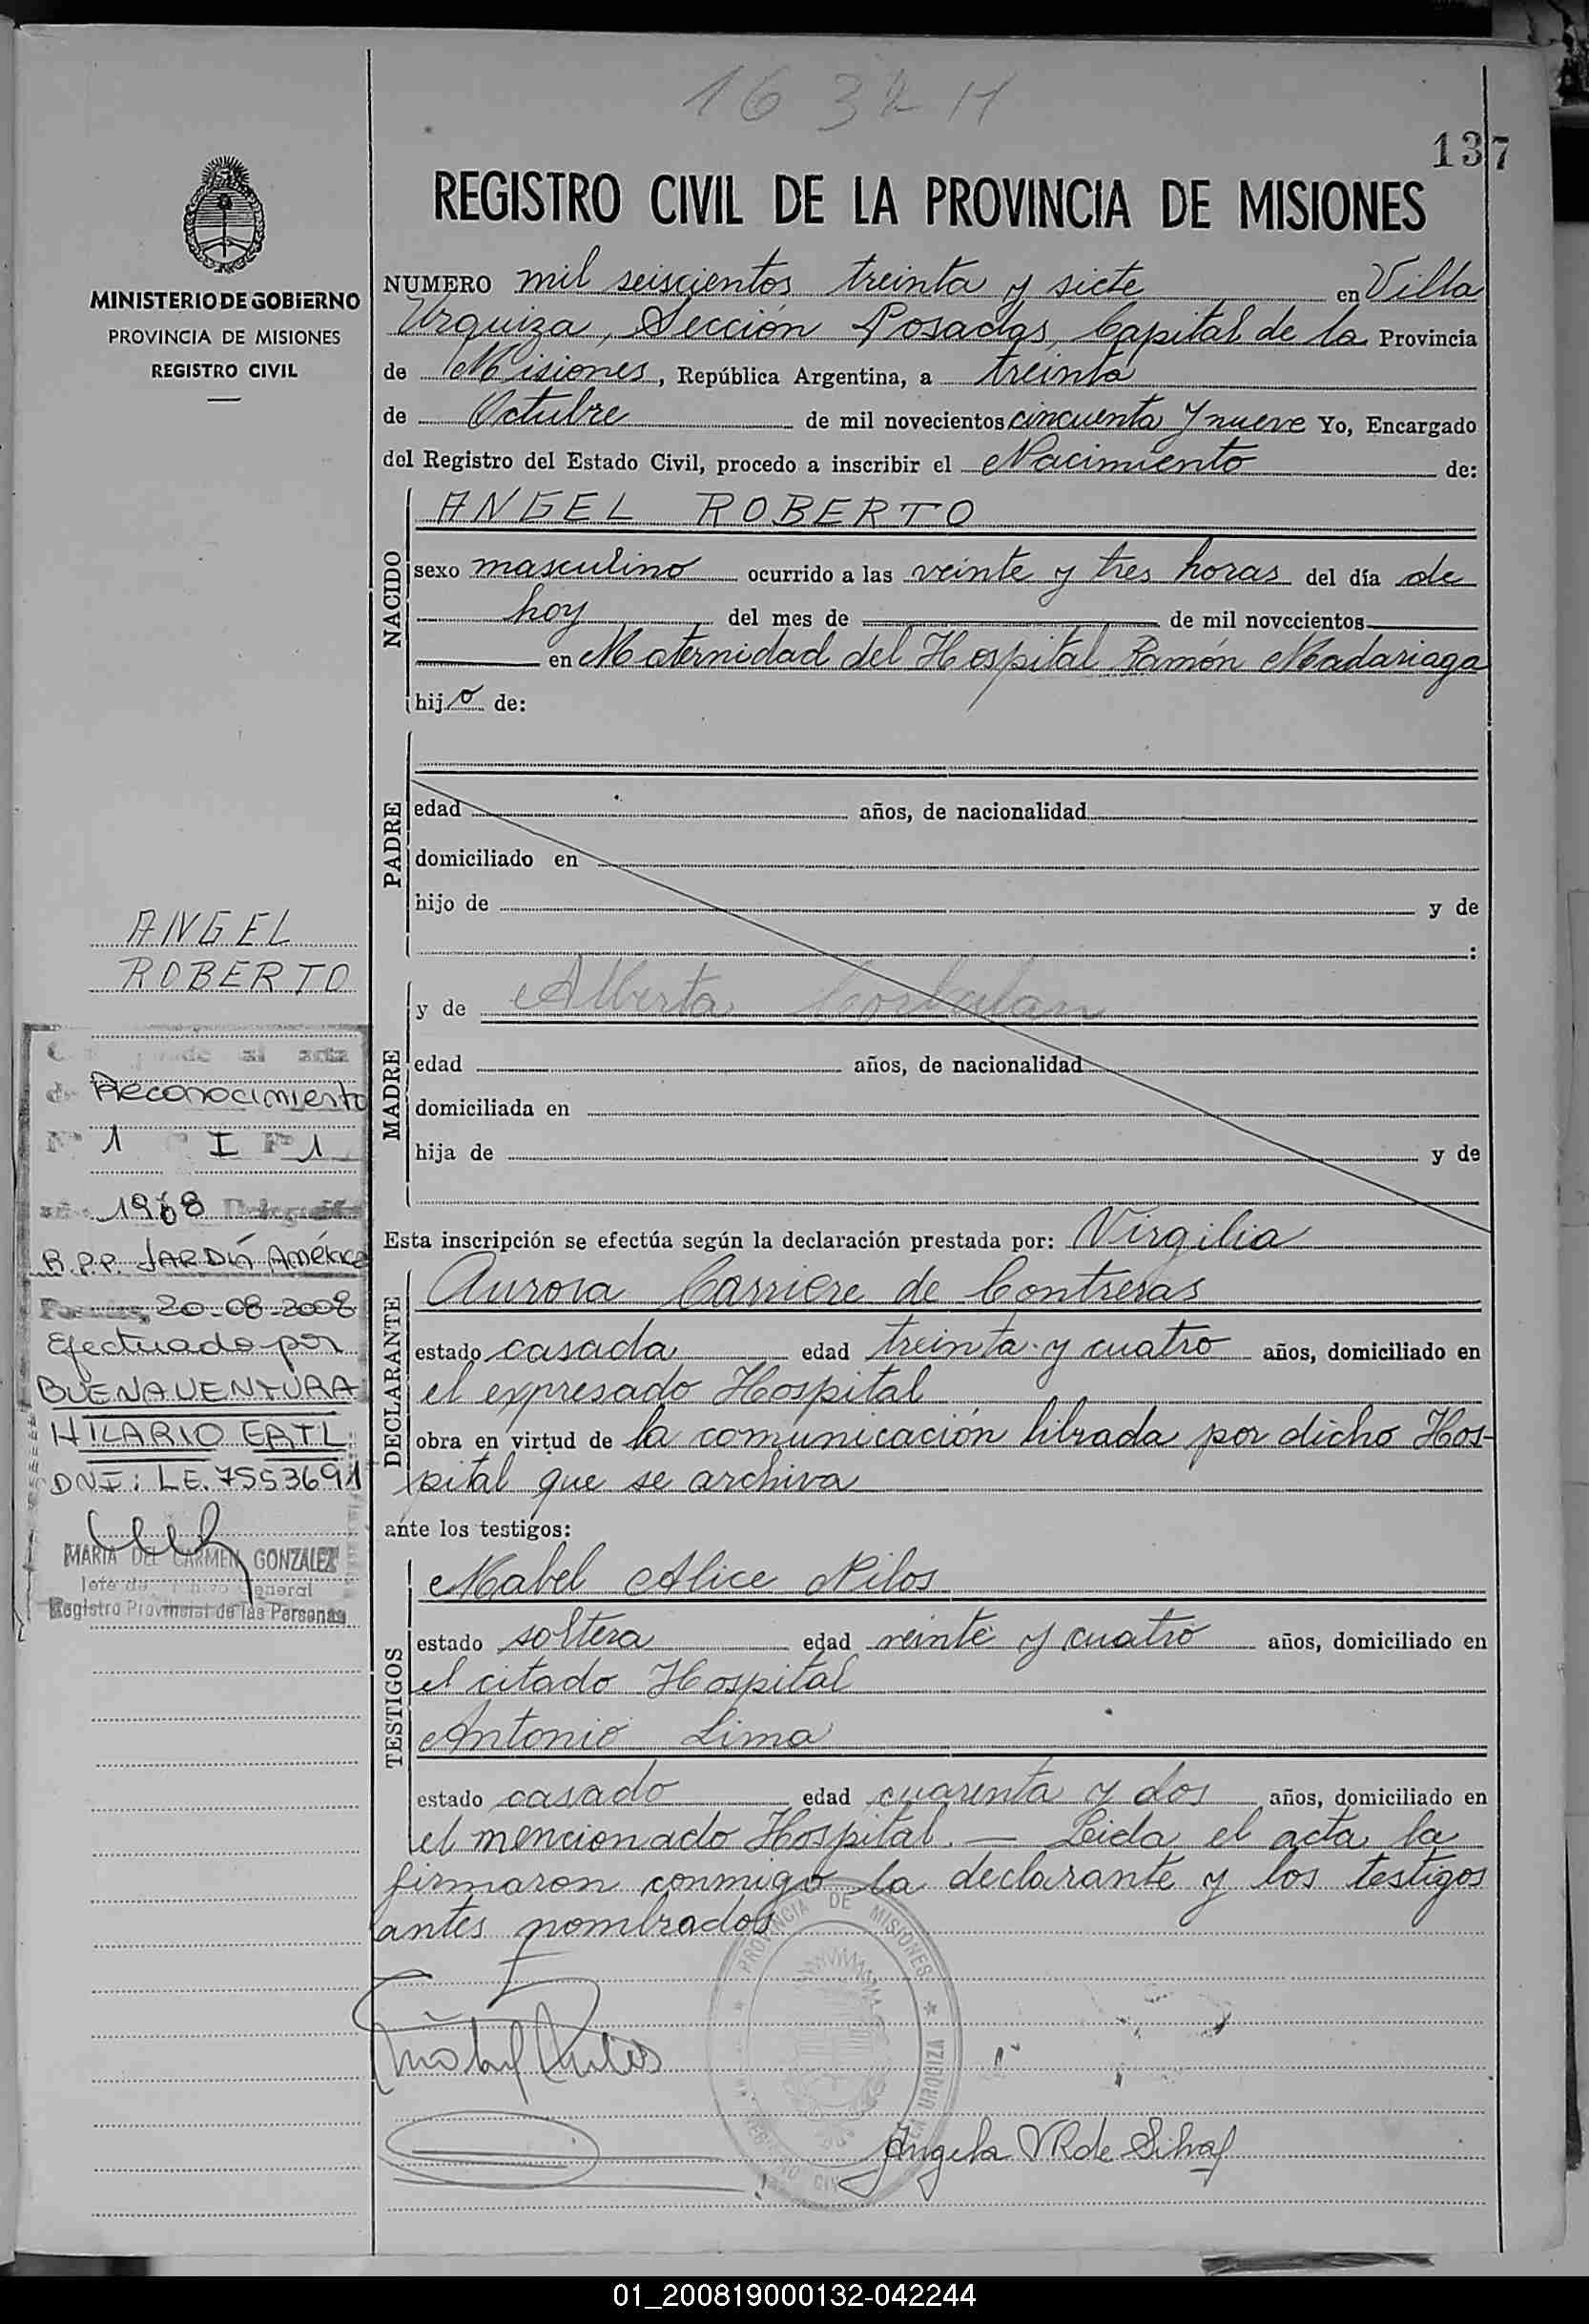 137
MINISTERIO DE GOBIERNO
PROVINCIA DE MISIONES
REGISTRO CIVIL
REGISTRO CIVIL DE LA PROVINCIA DE MISIONES
NUMERO mil seiscientos treinta y siete en Villa
Urquiza, Sección Posadas, Capital de la Provincia
de Misiones, República Argentina, a treinta
de Octubre de mil novecientos cincuenta y nueve Yo, Encargado
del Registro del Estado Civil, procedo a inscribir el Nacimiento de:
NACIDO
ANGEL ROBERTO
sexo masculino ocurrido a las veinte y tres horas del día de
hoy del mes de de mil novecientos
en Maternidad del Hospital Ramón Madariaga
hijo de:
PADRE
edad años, de nacionalidad
domiciliado en
hijo de y de
:
MADRE
y de Alberta
edad años, de nacionalidad
domiciliada en
hija de y de
Esta inscripción se efectúa según la declaración prestada por: Virgilia
DECLARANTE
Aurora Carriere de Contreras
estado casada edad treinta y cuatro años, domiciliado en
el expresado Hospital
obra en virtud de la comunicación librada por dicho Hos-
pital que se archiva
ante los testigos:
TESTIGOS
Mabel Alice Pilos
estado soltera edad veinte y cuatro años, domiciliado en
el citado Hospital
Antonio Lima
estado casado edad cuarenta y dos años, domiciliado en
el mencionado Hospital. — Leida el acta la
firmaron conmigo la declarante y los testigos
antes nombrados
PROVINCIA DE MISIONES
URQUIZA
Angela VR de Silva
ANGEL
ROBERTO
al acta
de Reconocimiento
Nº 1 I Fº 1
año 1968
R.P.P. JARDÍN AMÉRICA
20-08-2008
Efectuado por
BUENAVENTURA
HILARIO ERTL
DNI: LE. 7553691
MARIA DEL CARMEN GONZALEZ
General
Registro Provincial de las Personas
01_200819000132-042244